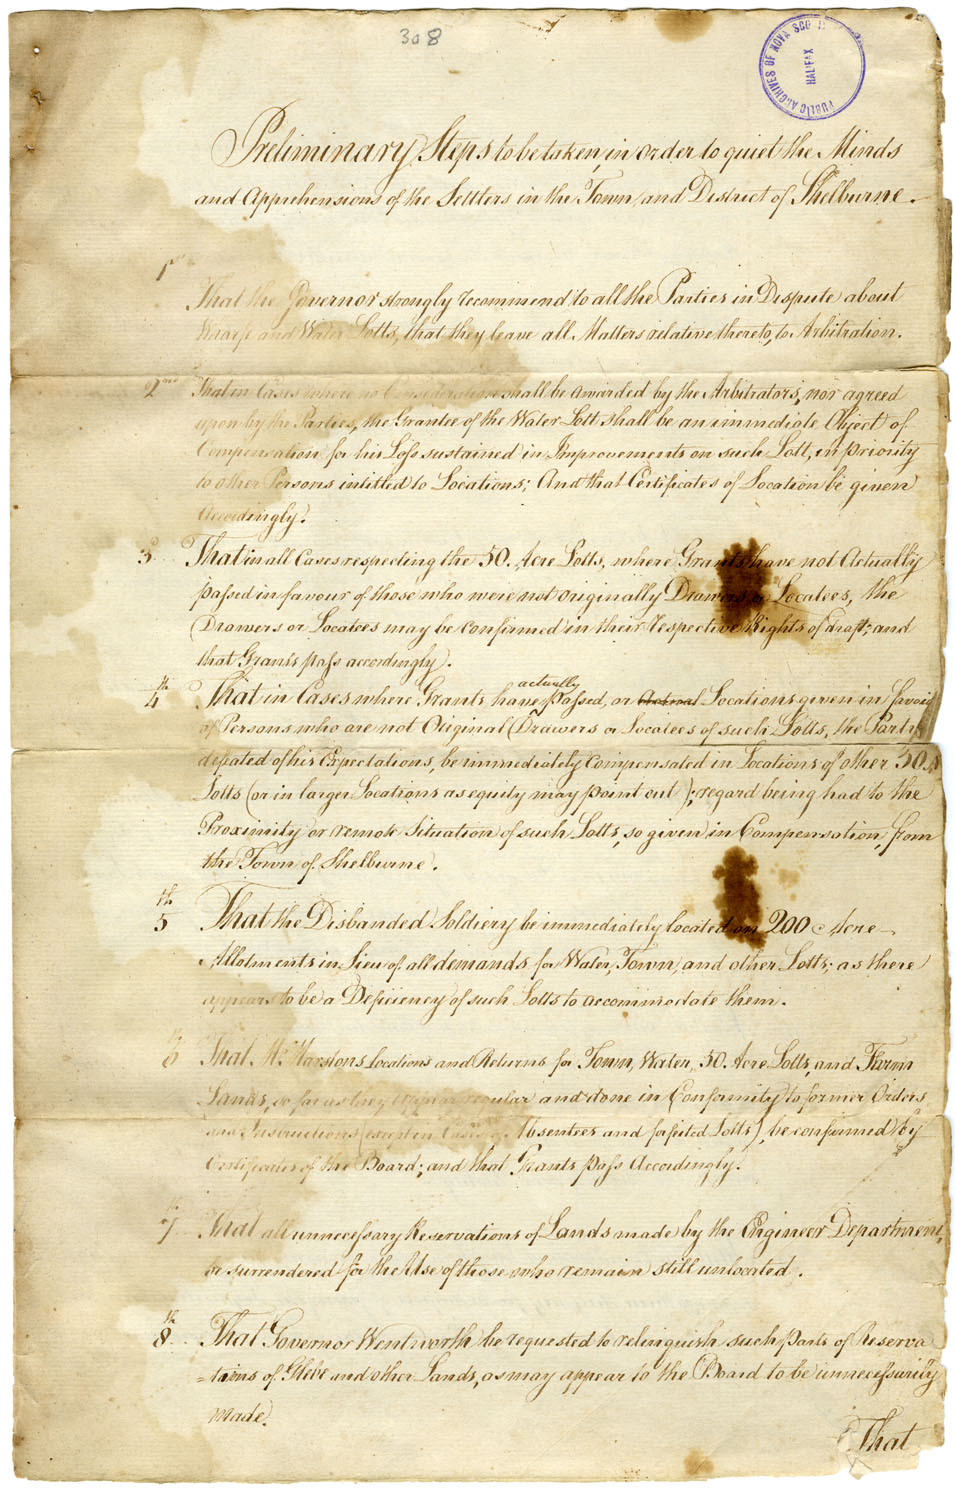 308
PUBLIC ARCHIVES OF NOVA SCO
HALIFAX
Preliminary Steps to be taken, in order to quiet the Minds
and Apprehensions of the Settlers in the Town and District of Shelburne.
1st
That the Governor strongly recommend to all the Parties in Dispute about
Wharf and Water Lotts, that they leave all Matters relative thereto, to Arbitration.
2nd That in Cases where no Consideration shall be awarded by the Arbitrators, nor agreed
upon by the Parties, the Grantee of the Water Lott shall be an immediate Object of
Compensation for his Loss sustained in Improvements on such Lott, in priority
to other Persons intitled to Locations; And that Certificates of Location be given
Accordingly.
3d That in all Cases respecting the 50. Acre Lotts, where Grants have not Actually
passed in favour of those who were not originally Drawers or Locatees, the
Drawers or Locatees may be confirmed in their respective Rights of Draft; and
that Grants pass accordingly.
actually
4th That in Cases where Grants have passed, or Actual Locations given in favor
of Persons who are not Original Drawers or Locatees of such Lotts, the Party
defeated of his Expectations, be immediately Compensated in Locations of other 50 A
Lotts (or in larger Locations as equity may point out); regard being had to the
Proximity or remote Situation of such Lotts, so given in Compensation, from
the Town of Shelburne.
5th That the Disbanded Soldiery be immediately located on 200 Acre
Allotments in Lieu of all demands for Water, Town, and other Lotts; as there
appears to be a Deficiency of such Lotts to accommodate them.
6th That Mr. Marstons Locations and Returns for Town, Water, 50. Acre Lotts, and Farm
Lands, so far as they appear regular and done in Conformity to former Orders
and Instructions (except in Cases of Absentees and forfeited Lotts), be confirmed by
Certificates of the Board; and that Grants pass Accordingly.
7th That all unnecessary Reservations of Lands made by the Engineer Department,
be surrendered for the Use of those who remain still unlocated.
8th That Governor Wentworth be requested to relinquish such parts of Reserva
=tions of Glebe and other Lands, as may appear to the Board to be unnecessarily
made.
That